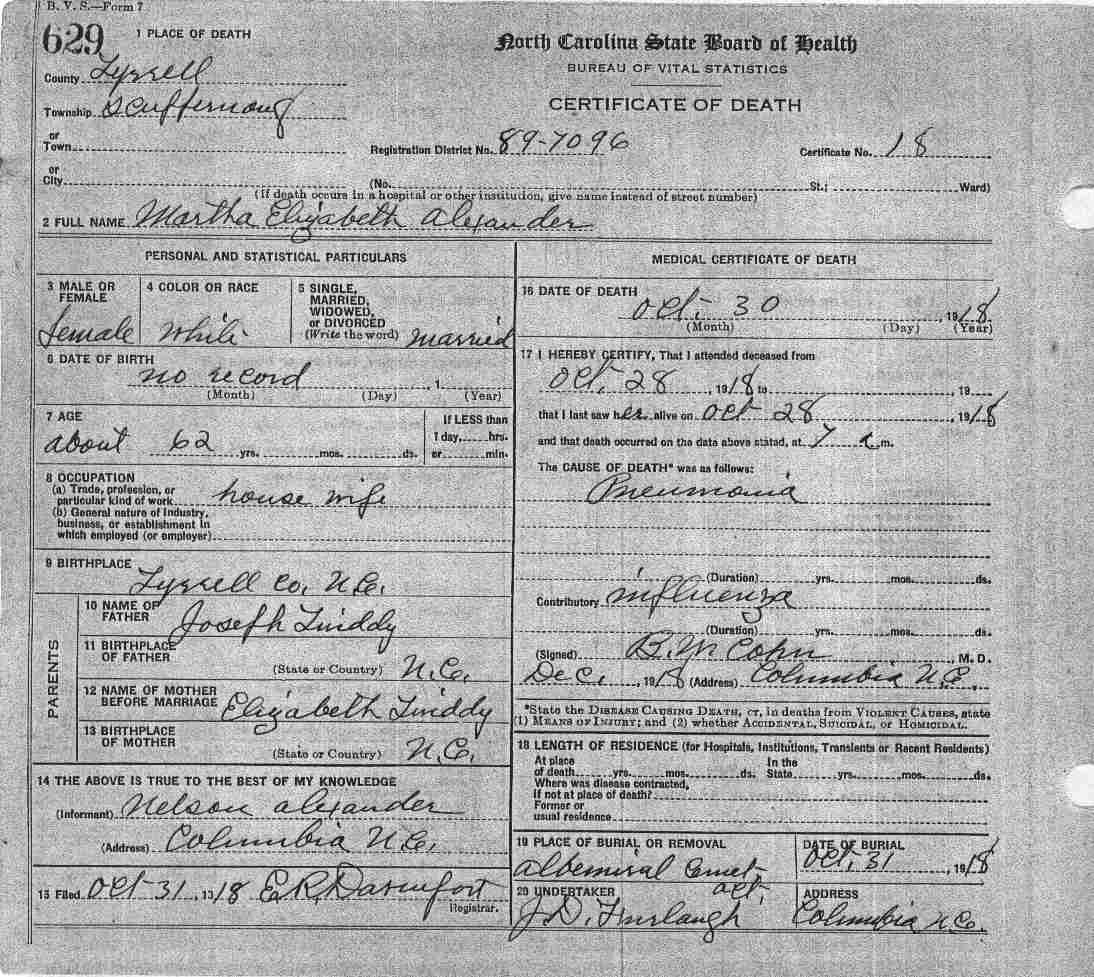 B. V. S.—Form 7
629
1 PLACE OF DEATH
North Carolina State Board of Health
BUREAU OF VITAL STATISTICS
CERTIFICATE OF DEATH
County Tyrrell
Township Scuffernong
or
Town
Registration District No. 89-7096
Certificate No. 18
or
City (No. St.; Ward)
(If death occurs in a hospital or other institution, give name instead of street number)
2 FULL NAME Martha Elizabeth Alexander
PERSONAL AND STATISTICAL PARTICULARS
3 MALE OR FEMALE female
4 COLOR OR RACE White
5 SINGLE, MARRIED, WIDOWED, or DIVORCED (Write the word) married
6 DATE OF BIRTH
no record , 1
(Month) (Day) (Year)
7 AGE
about 62 yrs. mos. ds.
If LESS than
1 day, hrs.
or min.
8 OCCUPATION
(a) Trade, profession, or
particular kind of work house wife
(b) General nature of Industry,
business, or establishment in
which employed (or employer)
9 BIRTHPLACE
Tyrrell Co, N.C.
PARENTS
10 NAME OF FATHER
Joseph Liddy
11 BIRTHPLACE OF FATHER
(State or Country) N.C.
12 NAME OF MOTHER BEFORE MARRIAGE Elizabeth Liddy
13 BIRTHPLACE OF MOTHER
(State or Country) N.C.
14 THE ABOVE IS TRUE TO THE BEST OF MY KNOWLEDGE
(Informant) Nelson Alexander
(Address) Columbia N.C.
15 Filed Oct 31, 1918 E.R. Davenport
Registrar.
MEDICAL CERTIFICATE OF DEATH
16 DATE OF DEATH
Oct. 30 , 1918
(Month) (Day) (Year)
17 I HEREBY CERTIFY, That I attended deceased from
Oct. 28 , 1918 to , 19
that I last saw her alive on Oct 28 , 1918
and that death occurred on the date above stated, at 7 a m.
The CAUSE OF DEATH* was as follows:
Pneumonia
(Duration) yrs. mos. ds.
Contributory influenza
(Duration) yrs. mos. ds.
(Signed) , M. D.
Dec. , 1918 (Address) Columbia N.C.
*State the DISEASE CAUSING DEATH, or, in deaths from VIOLENT CAUSES, state
(1) MEANS OF INJURY; and (2) whether ACCIDENTAL, SUICIDAL, or HOMICIDAL.
18 LENGTH OF RESIDENCE (for Hospitals, Institutions, Transients or Recent Residents)
At place
of death yrs. mos. ds.
In the
State yrs. mos. ds.
Where was disease contracted,
if not at place of death?
Former or
usual residence
19 PLACE OF BURIAL OR REMOVAL
Albemiral Cemet.
DATE OF BURIAL
Oct. 31 , 1918
20 UNDERTAKER Oct.
J. D. Furlaugh
ADDRESS
Columbia N.C.